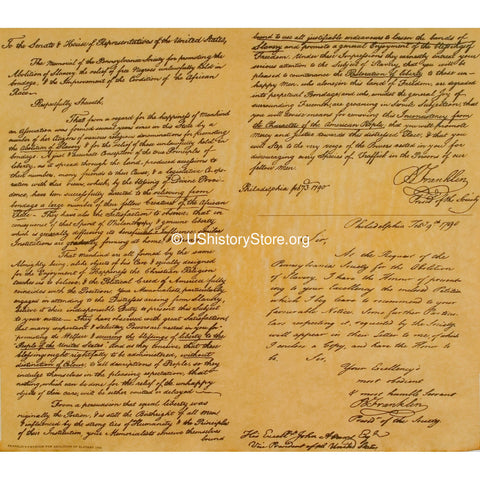 To the Senate & House of Representatives of the United States,
The Memorial of the Pennsylvania Society for promoting the
Abolition of Slavery, the relief of free Negroes unlawfully held in
bondage, & the Improvement of the Condition of the African
Race.
Respectfully Sheweth,
That from a regard for the happiness of Mankind
an Association was formed several years since in this State by a
number of her Citizens of various religious denominations for promoting
the Abolition of Slavery & for the relief of those unlawfully held in
bondage. A just & accurate Conception of the true Principles of
liberty, as it spread through the land, produced accessions to
their numbers, many friends to their Cause, & a legislative Co-operation
with their views, which, by the blessing of Divine Providence,
have been successfully directed to the relieving from
bondage a large number of their fellow Creatures of the African
Race. They have also the Satisfaction to observe, that in
consequence of that Spirit of Philanthropy & genuine liberty
which is generally diffusing its beneficial Influence, similar
Institutions are gradually forming at home & abroad.
That mankind are all formed by the same
Almighty being, alike objects of his Care & equally designed
for the Enjoyment of Happiness the Christian Religion
teaches us to believe & the Political Creed of America fully
coincides with the Position. Your Memorialists, particularly
engaged in attending to the Distresses arising from Slavery,
believe it their indispensable Duty to present this Subject
to your notice. They have observed with great Satisfaction
that many important & salutary Powers are vested in you for
promoting the Welfare & securing the blessings of liberty to the
People of the United States. And as they conceive, that these
blessings ought rightfully to be administered, without
distinction of Colour, to all descriptions of People, so they
indulge themselves in the pleasing expectation, that
nothing which can be done for the relief of the unhappy
objects of their care, will be either omitted or delayed.
From a persuasion that equal liberty was
originally the Portion, & is still the Birthright of all Men
& influenced by the strong ties of Humanity & the Principles
of their Institution, your Memorialists conceive themselves
bound
bound to use all justifiable endeavours to loosen the bands of
Slavery and promote a general Enjoyment of the blessings of
Freedom. Under these Impressions they earnestly intreat your
serious attention to the Subject of Slavery, that you will be
pleased to countenance the Restoration of liberty to those unhappy
Men, who alone, in this land of Freedom, are degraded
into perpetual Bondage, and who, amidst the general Joy of
surrounding Freemen, are groaning in Servile Subjection, that
you will devise means for removing this Inconsistency from
the Character of the American People, that you will promote
Mercy and Justice towards this distressed Race, & that you
will Step to the very verge of the Powers vested in you for
discouraging every Species of Traffick in the Persons of our
fellow Men.
Philadelphia Feby 3d 1790
B Franklin
Presidt of the Society
© UShistoryStore.org
Philadelphia Feby 9th 1790
Sir,
At the Request of the
Pennsylvania Society for the Abolition
of Slavery, I have the Honour of presenting
to your Excellency the enclosed Petition
which I beg leave to recommend to your
favourable Notice. Some further Particulars
respecting it, requested by the Society,
will appear in their Letter to me, of which
I enclose a Copy, and have the Honour to
be, Sir,
Your Excellency's
most obedient
& most humble Servant
B Franklin
Presidt of the Society
His Excelly John Adams, Esqr
Vice President of the United States
FRANKLIN'S PETITION FOR ABOLITION OF SLAVERY 1790